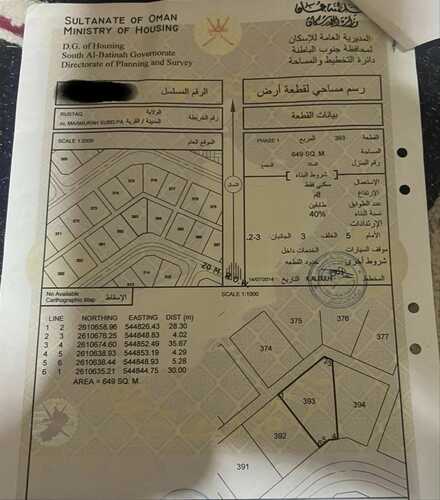 SULTANATE OF OMAN
MINISTRY OF HOUSING
D.G. of Housing
South Al-Batinah Governorate
Directorate of Planning and Survey
المديرية العامة للإسكان
لمحافظة جنوب الباطنة
دائرة التخطيط والمساحة
الرقم المسلسل
رسم مساحي لقطعة أرض
RUSTAQ
الولاية
المدينة / القرية
رقم الخريطة
بيانات القطعة
SCALE 1:2500
الموقع العام
القطعة 393 المربع PHASE 1
المساحة 649 SQ. M.
رقم المنزل السكة المجمع
شروط البناء
الإستعمال سكني فقط
الإرتفاع 8م
عدد الطوابق طابقين
نسبة البناء 40%
الإرتدادات
الأمام 5 الخلف 3 الجانبان 2-3
موقف السيارات الخدمات داخل
شروط أخرى حدود القطعة
المخطط التاريخ 14/07/2014
20 M. R.O.W
No Available
Cartographic Map
الإسقاط
SCALE 1:1000
LINE NORTHING EASTING DIST (m)
1 2 2610658.96 544826.43 28.30
2 3 2610678.25 544848.83 4.02
3 4 2610674.60 544852.49 35.67
4 5 2610638.93 544853.19 4.29
5 6 2610638.44 544848.93 5.28
6 1 2610635.21 544844.75 30.00
AREA = 649 SQ. M.
376
375
377
374
393
394
392
391